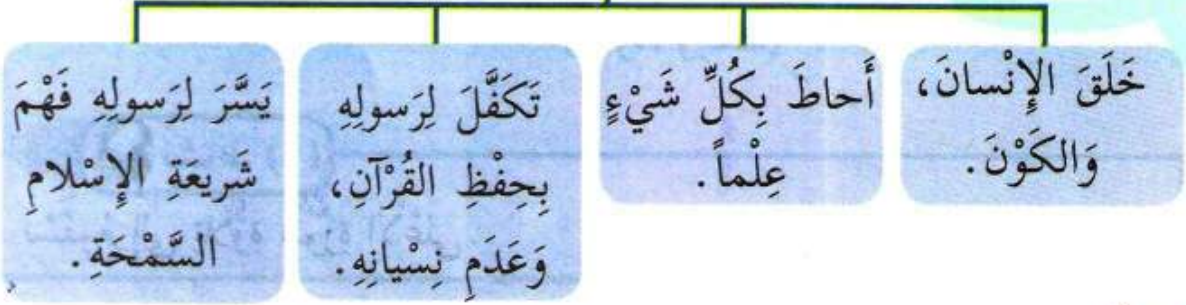 خَلَقَ الإِنْسانَ،
وَالكَوْنَ.
أَحاطَ بِكُلِّ شَيْءٍ
عِلْماً.
تَكَفَّلَ لِرَسولِهِ
بِحِفْظِ القُرْآنِ،
وَعَدَمِ نِسْيانِهِ.
يَسَّرَ لِرَسولِهِ فَهْمَ
شَريعَةِ الإِسْلامِ
السَّمْحَةِ.